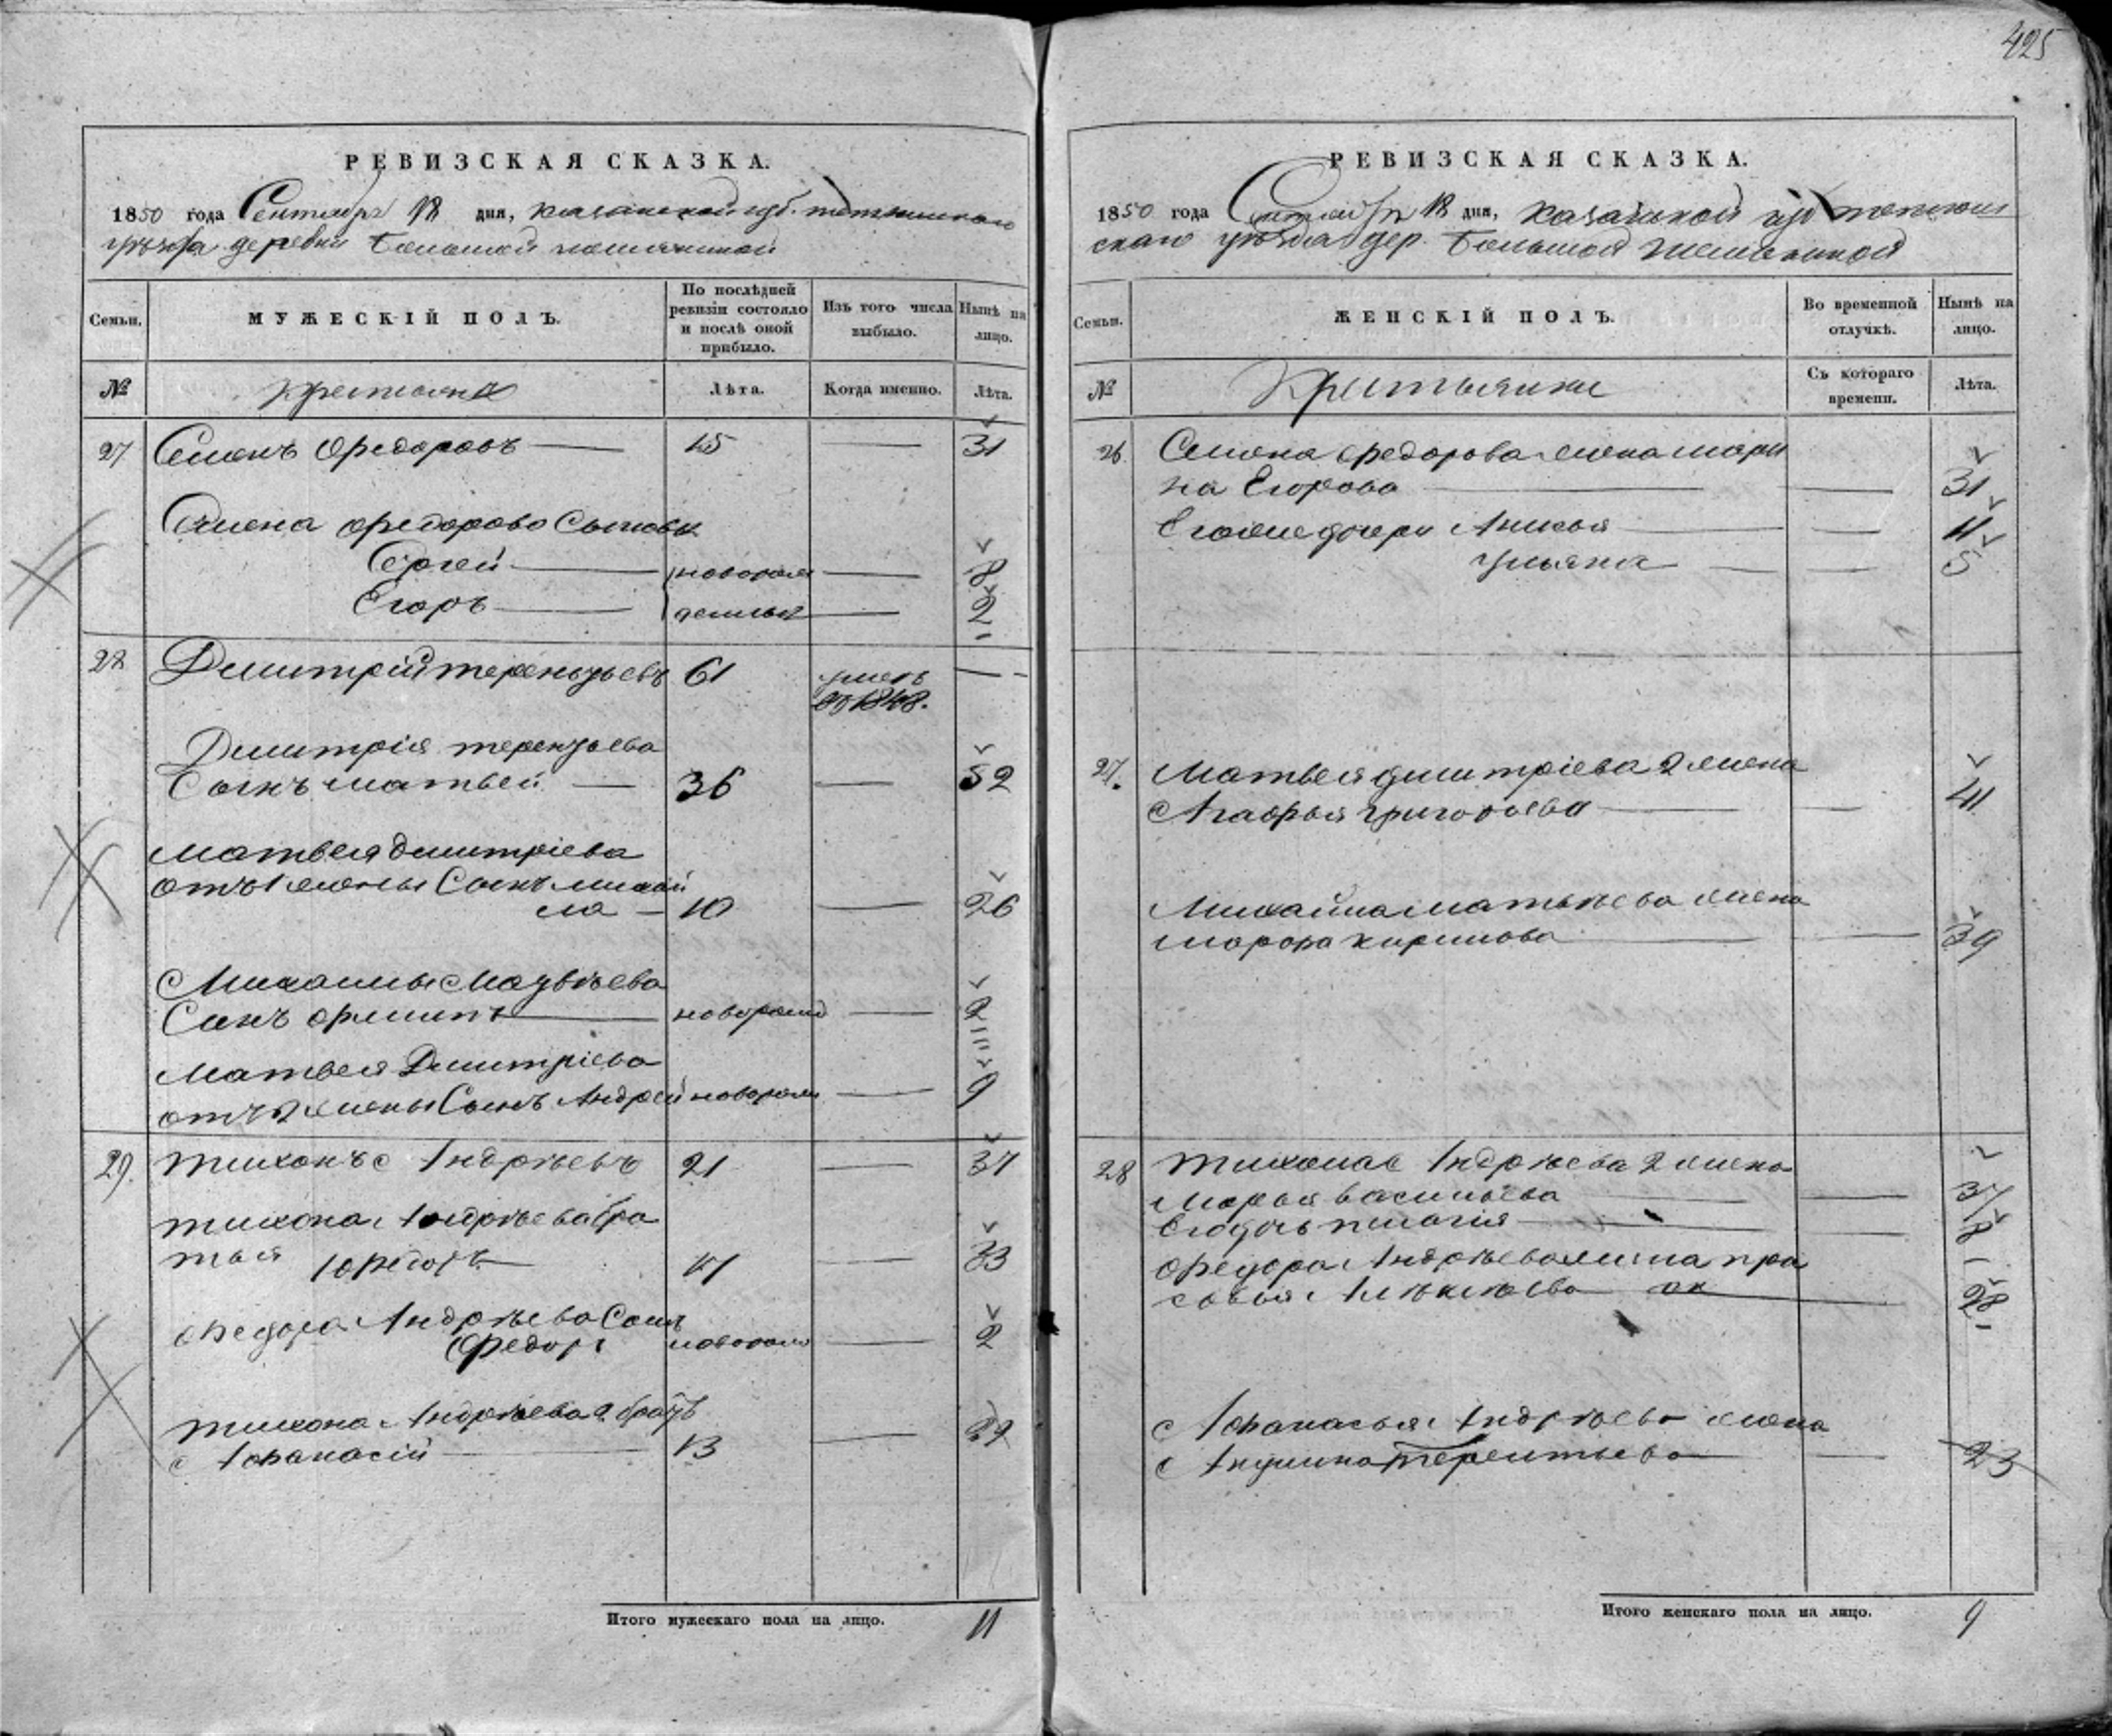 425
РЕВИЗСКАЯ СКАЗКА.
1850 года Сентября 18 дня, казанской губ. тетюшскаго
уѣзда деревни Большой
Семьи.
МУЖЕСКІЙ ПОЛЪ.
По послѣдней ревизіи состояло и послѣ оной прибыло.
Изъ того числа выбыло.
Нынѣ на лицо.
№
крестьяна
Лѣта.
Когда именно.
Лѣта.
27 Семенъ Федоровъ 15 31
Семена Федорова Сыновья
Сергей новорож 8
Егоръ 2
28 Димитрій терентьевъ 61 умеръ
въ 1848.
Димитрія терентьева
Сынъ матвей 36 52
матвея димитріева
отъ 1 жены Сынъ михай
ла 10 26
Михаилы Матвѣева
Сынъ филипъ новорожд 2
матвея Димитріева
отъ 2 жены Сынъ Андрей новорож 9
29. тихонъ Андрѣевъ 21 37
тихона Андрѣева бра
тья 1 Федоръ 17 33
Федора Андрѣева Сынъ
Федоръ новорож 2
тихона Андрѣева 2 братъ
Афанасій 13 29
Итого мужескаго пола на лицо. 11
РЕВИЗСКАЯ СКАЗКА.
1850 года Сентября 18 дня, казанской губ тетюш
скаго уѣзда дер. Большой
Семьи.
ЖЕНСКІЙ ПОЛЪ.
Во временной отлучкѣ.
Нынѣ на лицо.
№
Крестьянки
Съ котораго времени.
Лѣта.
26 Семена федорова жена мари
на Егорова 31
Его же дочери Анисья 11
ульяна 5
27. Матвея димитріева 2 жена
Агафья григорьева 41
Михайла матвѣева жена
марфа кирилова 39
28 тихона Андрѣева 2 жена
Марья васильева 37
Его дочь пелагія 8
Федора Андрѣева жена пра
сковья Алексѣева 28
Афанасья Андрѣева жена
Акулина терентьева 23
Итого женскаго пола на лицо. 9